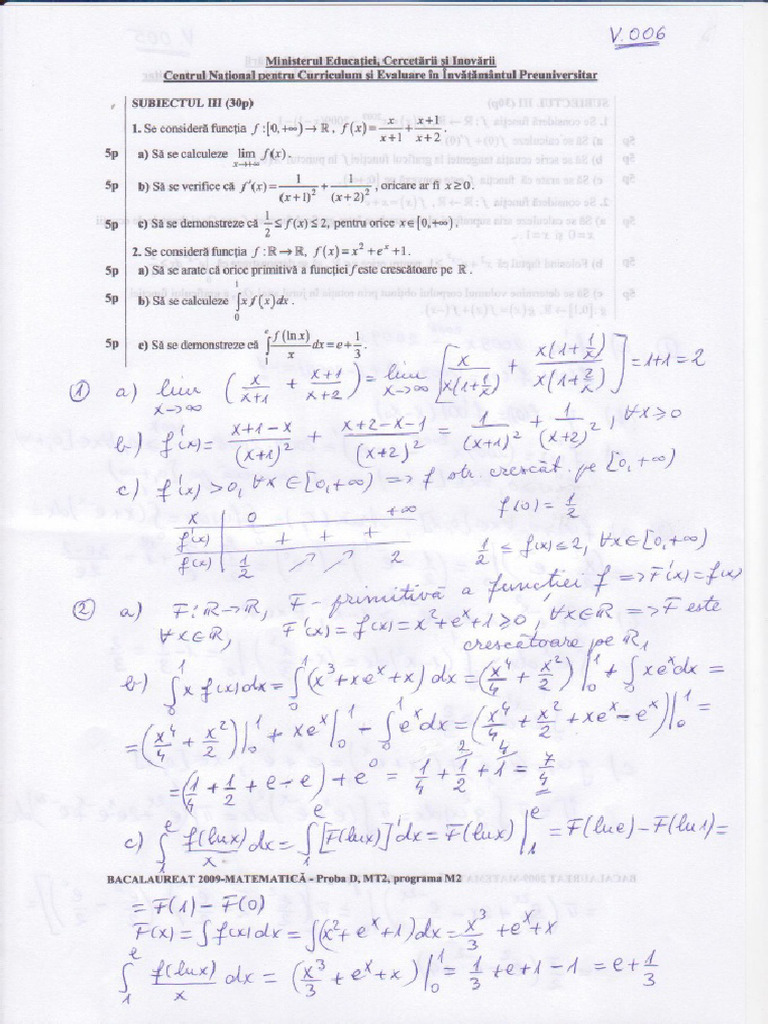 V.006
Ministerul Educaţiei, Cercetării şi Inovării
Centrul Naţional pentru Curriculum şi Evaluare în Învăţământul Preuniversitar
SUBIECTUL III (30p)
1. Se consideră funcţia f:[0,+∞)→ℝ, f(x)=x/(x+1)+(x+1)/(x+2).
5p a) Să se calculeze lim x→+∞ f(x).
5p b) Să se verifice că f'(x)=1/(x+1)²+1/(x+2)², oricare ar fi x≥0.
5p c) Să se demonstreze că 1/2≤f(x)≤2, pentru orice x∈[0,+∞).
2. Se consideră funcţia f:ℝ→ℝ, f(x)=x²+eˣ+1.
5p a) Să se arate că orice primitivă a funcţiei f este crescătoare pe ℝ.
5p b) Să se calculeze ∫₀¹ x f(x)dx.
5p c) Să se demonstreze că ∫₁ᵉ f(ln x)/x dx=e+1/3.
① a) lim x→∞ (x/(x+1) + (x+1)/(x+2)) = lim x→∞ [x/(x(1+1/x)) + x(1+1/x)/(x(1+2/x))] = 1+1 = 2
b) f'(x) = (x+1-x)/(x+1)² + (x+2-x-1)/(x+2)² = 1/(x+1)² + 1/(x+2)², ∀x≥0
c) f'(x)>0, ∀x∈[0,+∞) => f str. crescăt. pe [0,+∞)
x 0 +∞ f(0) = 1/2
f'(x) + + +
f(x) 1/2 ↗ ↗ 2 1/2 ≤ f(x) ≤ 2, ∀x∈[0,+∞)
② a) F:ℝ→ℝ, F - primitivă a funcţiei f => F'(x)=f(x)
∀x∈ℝ, F'(x) = f(x) = x²+eˣ+1 ≥ 0, ∀x∈ℝ => F este
crescătoare pe ℝ,
b) ∫₀¹ x f(x)dx = ∫₀¹ (x³+xeˣ+x) dx = (x⁴/4 + x²/2)|₀¹ + ∫₀¹ xeˣdx =
= (x⁴/4 + x²/2)|₀¹ + xeˣ|₀¹ - ∫₀¹ eˣdx = (x⁴/4 + x²/2 + xeˣ - eˣ)|₀¹ =
= (1/4 + 1/2 + e - e) + e⁰ = 1/4 + 1/2 + 1 = 7/4
c) ∫₁ᵉ f(lnx)/x dx = ∫₁ᵉ [F(lnx)]' dx = F(lnx)|₁ᵉ = F(lne) - F(ln1) =
BACALAUREAT 2009-MATEMATICĂ - Proba D, MT2, programa M2
= F(1) - F(0)
F(x) = ∫f(x)dx = ∫(x²+eˣ+1)dx = x³/3 + eˣ + x
∫₁ᵉ f(lnx)/x dx = (x³/3 + eˣ + x)|₀¹ = 1/3 + e + 1 - 1 = e + 1/3